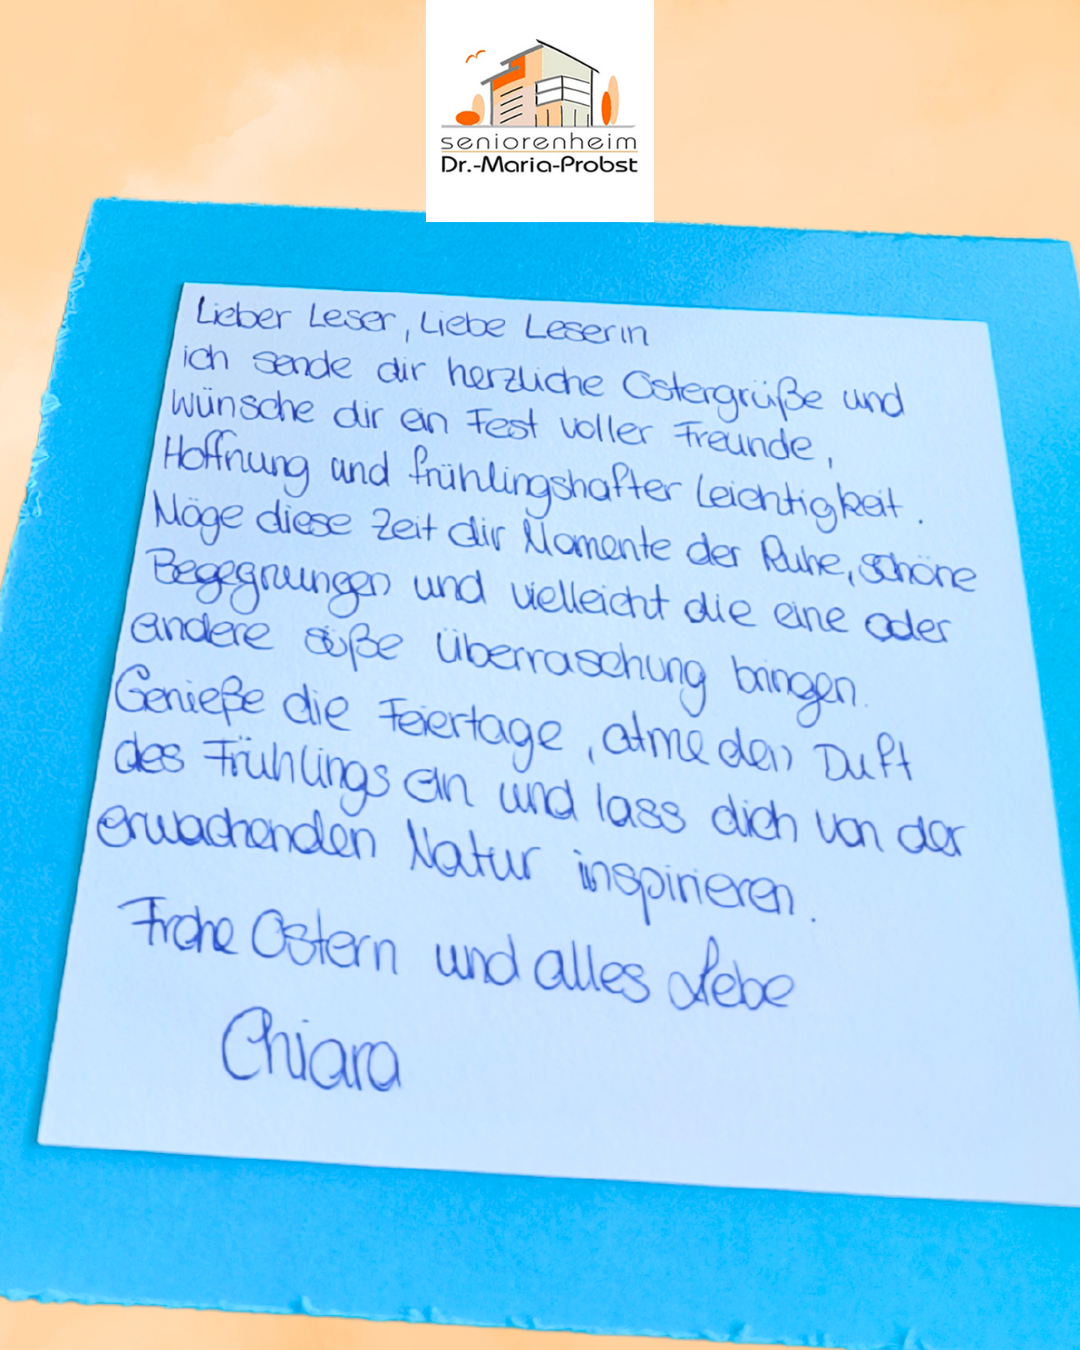 seniorenheim
Dr.-Maria-Probst
Lieber Leser, Liebe Leserin
ich sende dir herzliche Ostergrüße und
wünsche dir ein Fest voller Freunde,
Hoffnung und frühlingshafter Leichtigkeit.
Möge diese Zeit dir Momente der Ruhe, schöne
Begegnungen und vielleicht die eine oder
andere süße Überraschung bringen.
Genieße die Feiertage, atme den Duft
des Frühlings ein und lass dich von der
erwachenden Natur inspirieren.
Frohe Ostern und alles Liebe
Chiara